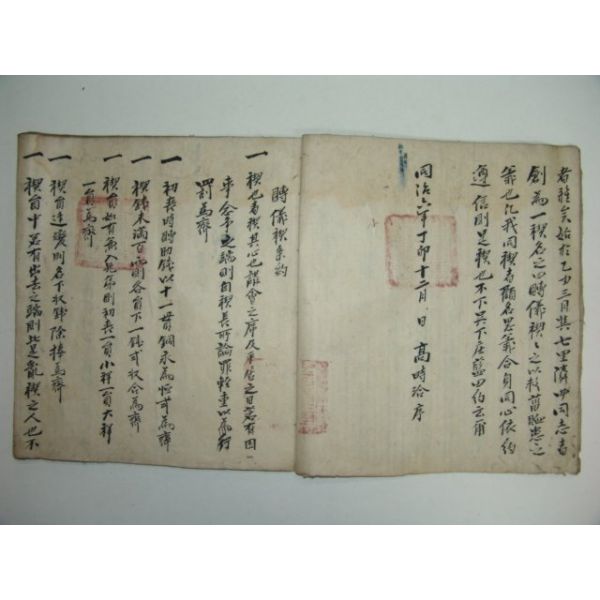 者難矣始於乙丑三月與七里隣中同志者
創為一稧名之曰時儀稧稧之以救菑恤患之
義也凡我同稧者顧名思義合自同心依約
遵信則是稧也不下呂下庄藍田約云爾
同治六年丁卯十二月 日 高時洽序
時儀稧条約
一 稧也者稧其心也講會之席及
率合爭之端則自稧長所論罪輕重以爲行
罰爲齊
一 初喪時賻助錢以十一貫銅永爲恒式爲齊
一 稧錢未滿百兩則各員下一錢式收合爲齊
一 稧員如有無人
則初喪一員小祥一員大祥
一員爲齊
一 稧員違變則名下收錢除捧爲齊
一 稧員中若有出去之端則此是亂稧之人也不